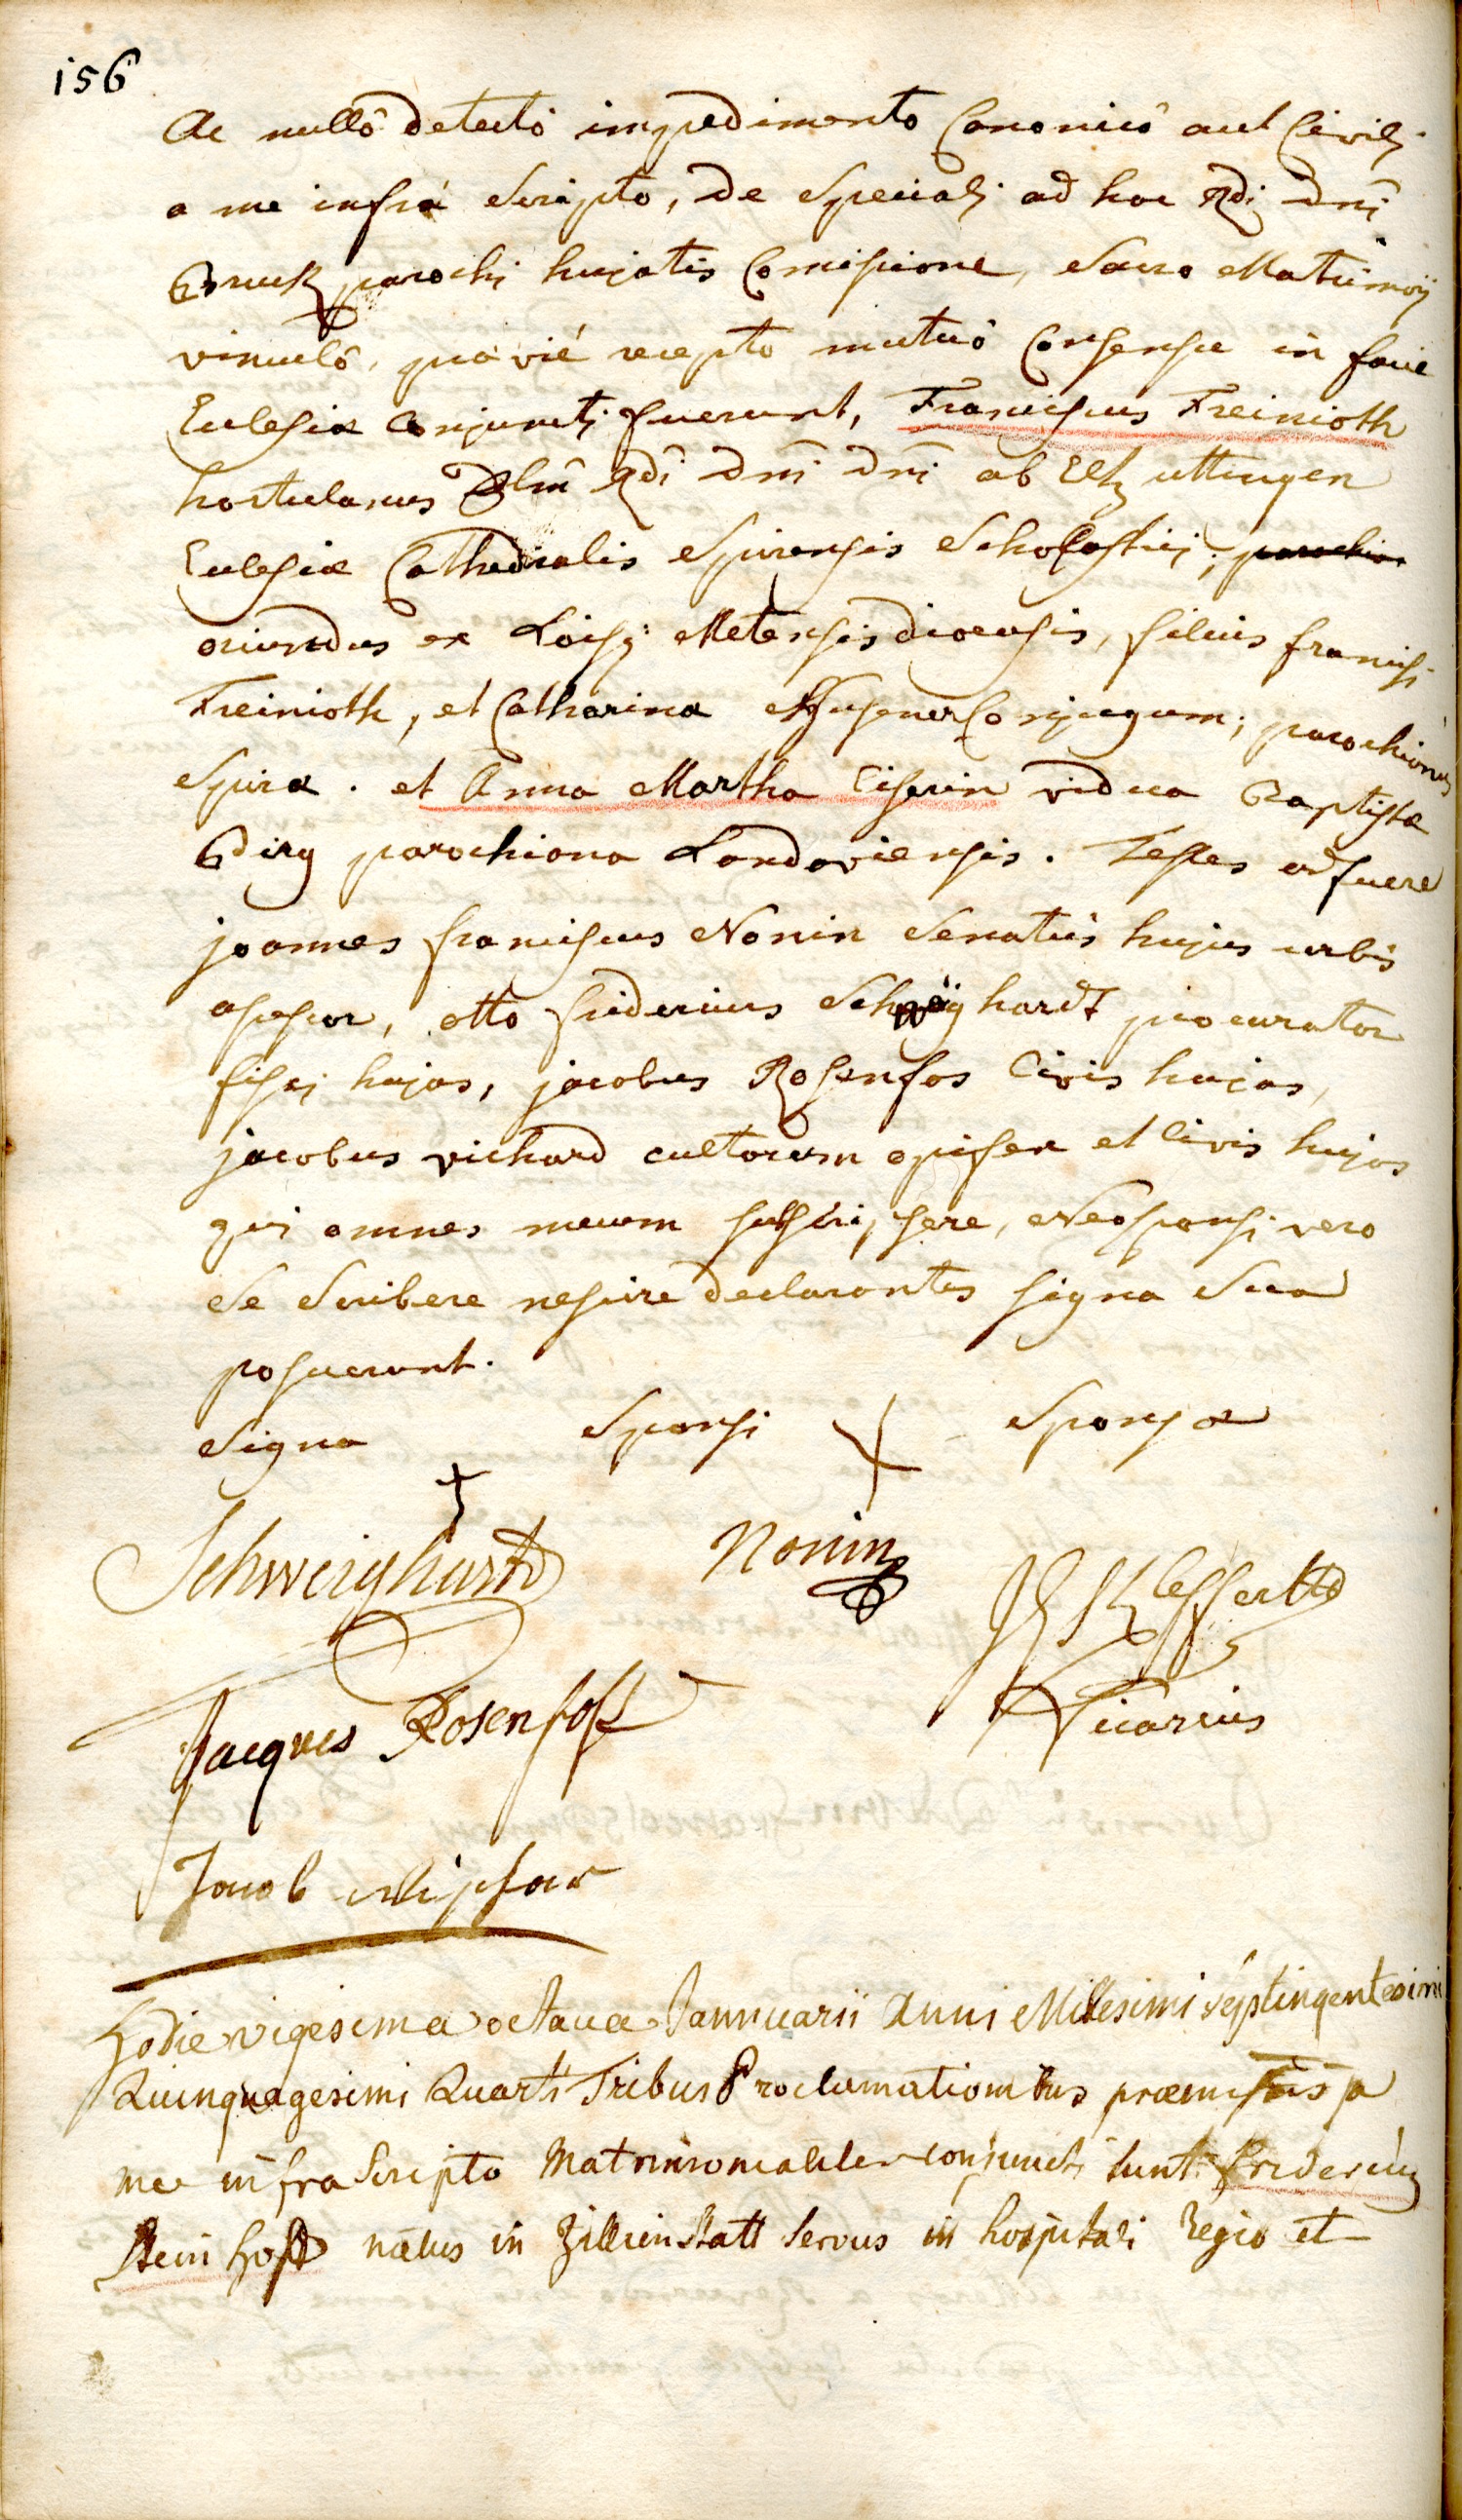 156
Ac nullô detectô impedimento Canonicô aut Civili
a me infrá Scripto, de Speciali ad hoc Rdi Dni
Bruck parochi hujatis Comissione, Sacro Matrimonij
vinculô, prævié recepto mutuô Consensu in facie
Ecclesiæ Conjuncti fuerunt, Franciscus Freinioth
hortulanus Rdi Dni Dni ab Eltz uttingen
Ecclesiæ Cathedralis Spirensis Scholastici,
oriundus ex Loisy Metensis diocesis, filius francisci
Freinioth, et Catharina Conjugum; parochianus
Spiræ. et Anna Martha Cisserin vidua Baptistæ
Birg parochiana Landaviensis. Testes adfuere
joannes franciscus Nonin Senatûs hujus urbis
assessor, otto fridericus Schweighardt procurator
fisci hujas, jacobus Rosenfos Civis hujas,
jacobus richard cultorum opifex et Civis hujas
qui omnes mecum subscripsere, Neosponsi vero
Se Scribere nescire declarantes signa Sua
posuerunt.
Signa Sponsi Sponsæ
Schweighardt Nonin
Vicarius
Jacques Rosenfoss
Jacob
Hodie vigesima octava Jannuarii Anni Millesimi Septingentesimi
Quinquagesimi Quarti Tribus Proclamationibus præmissis a
me infra Scripto Matrimonialiter conjuncti sunt Fridericus
Steinhoff natus in Zillienstatt Servus in hospitali Regio et